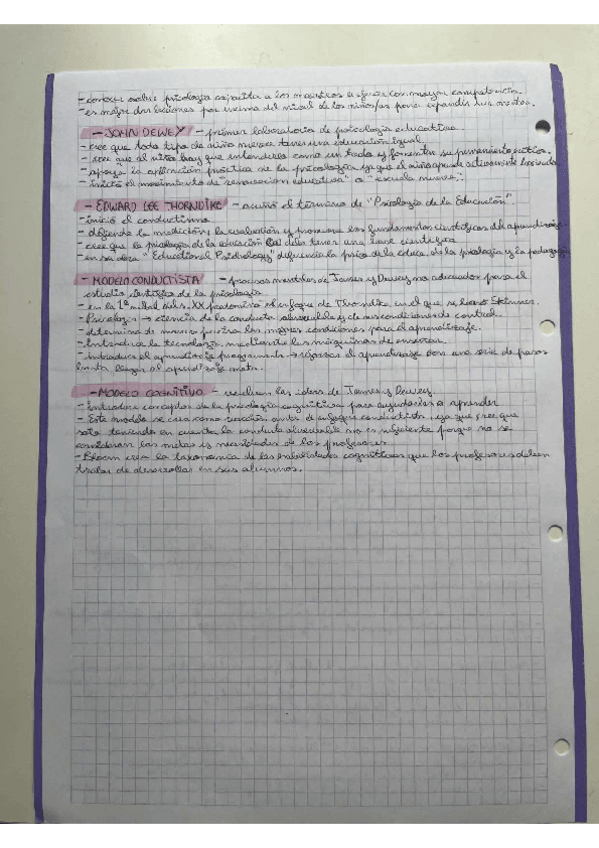 - conocer sobre psicología capacita a los maestros a ejercer con mayor competencia.
- es mejor dar lecciones por encima del nivel de los niños/as para expandir sus mentes.
- JOHN DEWEY - primer laboratorio de psicología educativa
- cree que todo tipo de niño merece tener una educación igual.
- cree que al niño hay que entenderlo como un todo y fomentar su pensamiento crítico.
- apoya la aplicación práctica de la psicología ya que el niño aprende activamente haciendo
- inició el movimiento de "renovación educativa" o "escuela nueva".
- EDWARD LEE THORNDIKE - acuñó el término de "Psicología de la Educación"
- inició el conductismo
- defiende la medición, la evaluación y promueve los fundamentos científicos del aprendizaje.
- cree que la psicología de la educación debe tener una base científica
- en su obra "Educational Psichology" diferencia la psico. de la educa. de la psicología y la pedagogía
- MODELO CONDUCTISTA - procesos mentales de James y Dewey no adecuados para el
estudio científico de la psicología
- en la 1ª mitad del s. XX predomina el enfoque de Thorndike, en el que se basó Skinner.
- Psicología → ciencia de la conducta observable y de sus condiciones de control.
- determina de manera precisa las mejores condiciones para el aprendizaje.
- Introduce la tecnología mediante las máquinas de enseñar.
- introduce el aprendizaje programado → el aprendizaje con una serie de pasos
hasta llegar al aprendizaje meta.
- MODELO COGNITIVO - vuelven las ideas de James y Dewey
- introduce conceptos de la psicología cognitiva para ayudarles a aprender
- Este modelo se crea como reacción antes el enfoque conductista, ya que cree que
solo teniendo en cuenta la conducta observable no es suficiente porque no se
consideran las metas y necesidades de los profesores
- Bloom crea la taxonomía de las habilidades cognitivas que los profesores deben
tratar de desarrollar en sus alumnos.